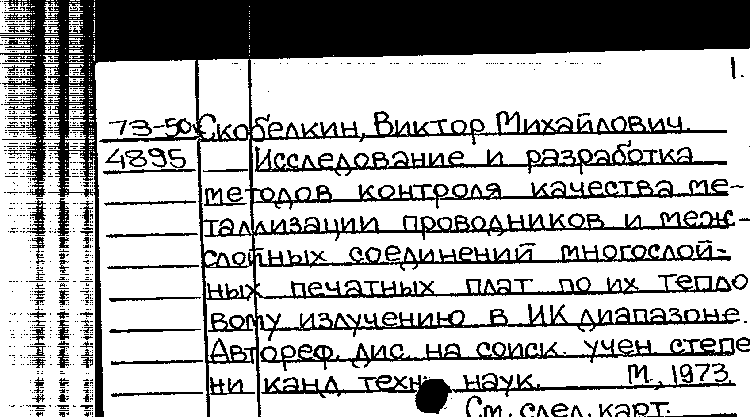 1.
73-50 Скобелкин, Виктор Михайлович.
4895 Исследование и разработка
методов контроля качества ме-
таллизации проводников и меж-
слойных соединений многослой-
ных печатных плат по их тепло
вому излучению в ИК диапазоне.
Автореф. дис. на соиск. учен степе
ни канд техн наук. М., 1973.
См. след. карт.